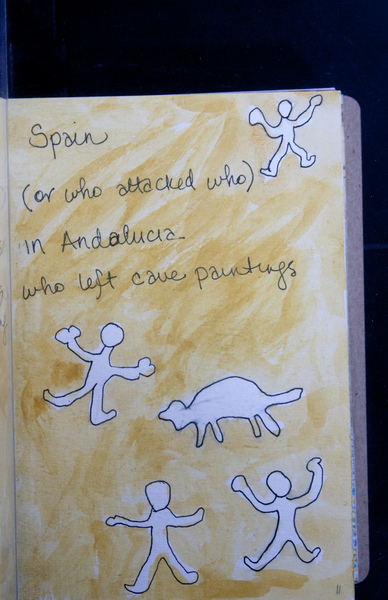 Spain
(or who attacked who)
in Andalucia
who left cave paintings
11